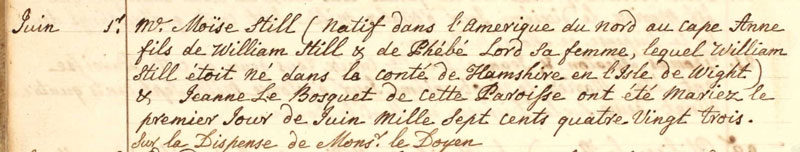 Juin 1r. Mr. Moïse Still (Natif dans l'Amerique du Nord au Cape Anne
fils de William Still & de Phébé Lord Sa femme, lequel William
Still étoit né dans la conté de Hamshire en l'Isle de Wight)
& Jeanne Le Bosquet de cette Paroisse ont été Mariez le
premier Jour de Juin Mille Sept cents quatre Vingt trois.
Sur la Dispense de Monsr. le Doyen